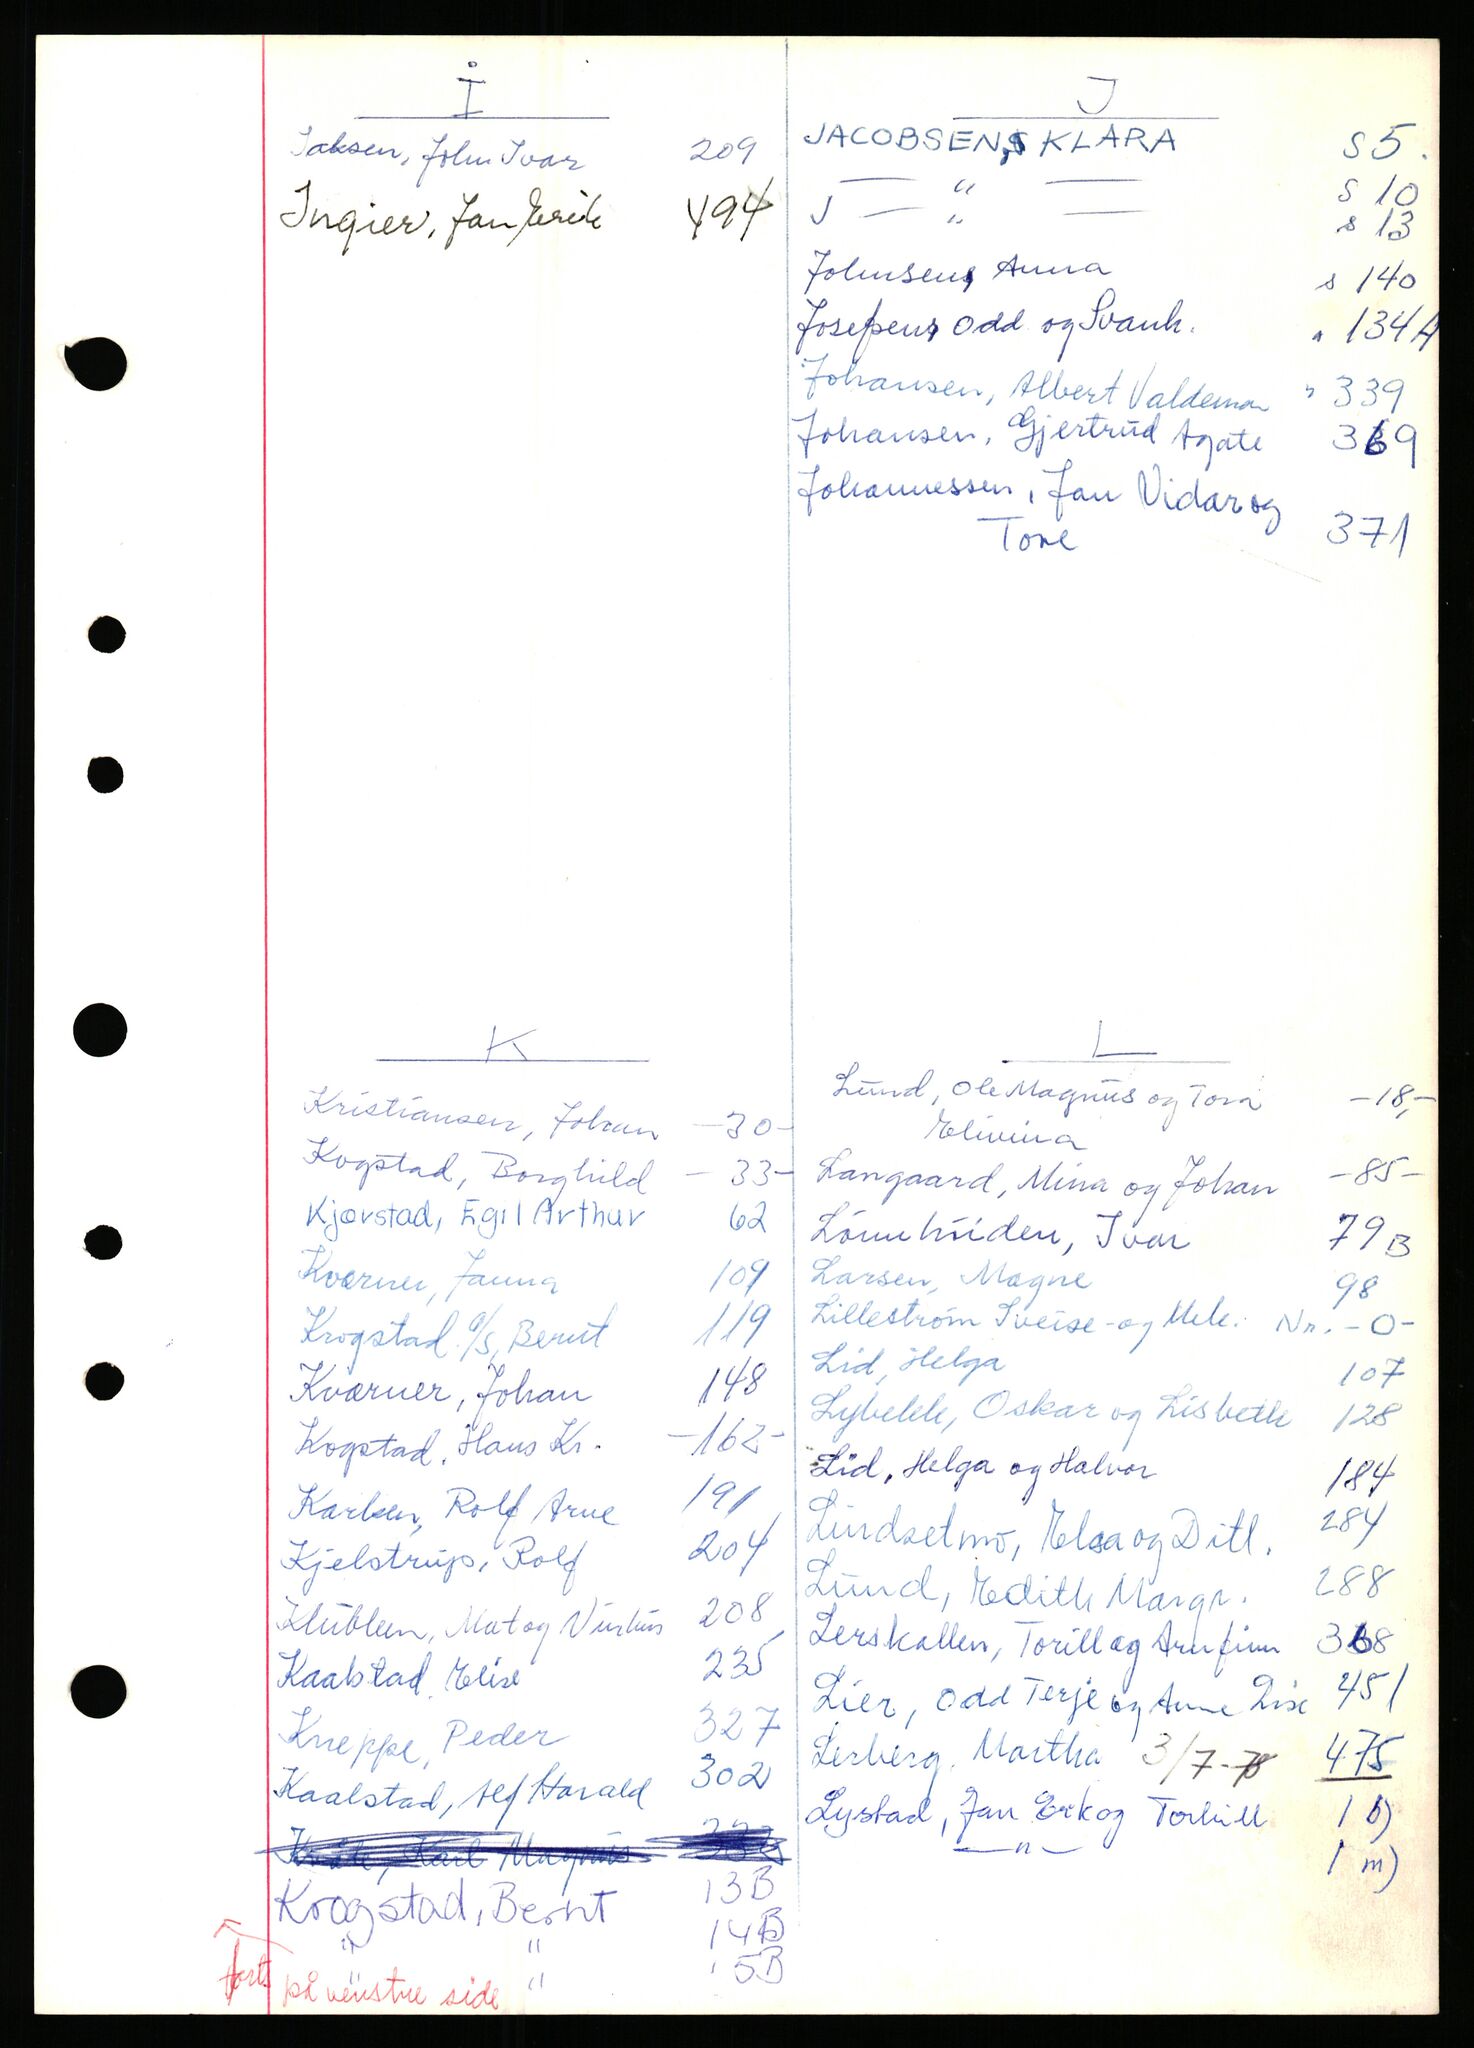 I
Isaksen, John Ivar 209
Ingier, Jan Erik 494
J
JACOBSEN, KLARA S 5.
— " — S 10
J — " — s 13
Johnsen, Anna s 140
Josefsen, Odd og Svanh. " 134A
Johansen, Albert Valdemar " 339
Johansen, Gjertrud Agate 369
Johannessen, Jan Vidar og
Tone 371
K
Kristiansen, Johan -30-
Kogstad, Borghild -33-
Kjørstad, Egil Arthur 62
Kværner, Janna 109
Krogstad A/S, Bernt 119
Kværner, Johan 148
Kogstad, Hans Kr. -162-
Karlsen, Rolf Arne 191
Kjelstrup, Rolf 204
Mat og Vinhus 208
Kaalstad, Elise 235
Kneppe, Peder 327
Kaalstad, Alf Harald 302
Karl Magnus
Krogstad, Bernt 13B
" " 14B
" " 15B
forts. på venstre side
L
Lund, Ole Magnus og Tora -18,-
Elivina
Langaard, Mina og Johan -85-
Lønnhüiden, Ivar 79B
Larsen, Magne 98
Lillestrøm Sveise- og Mek. Nr. -0-
Lid, Helga 107
Lybekk, Oskar og Lisbeth 128
Lid, Helga og Halvor 184
Lindsetmo, Elsa og Ditl. 284
Lund, Edith Margr. 288
Lerskallen, Torill og Arnfinn 368
Lier, Odd Terje og Anne Lise 451
Lerberg, Martha 3/7-78 475
Lystad, Jan Erik og Torhill 1 b)
— " — 1 m)